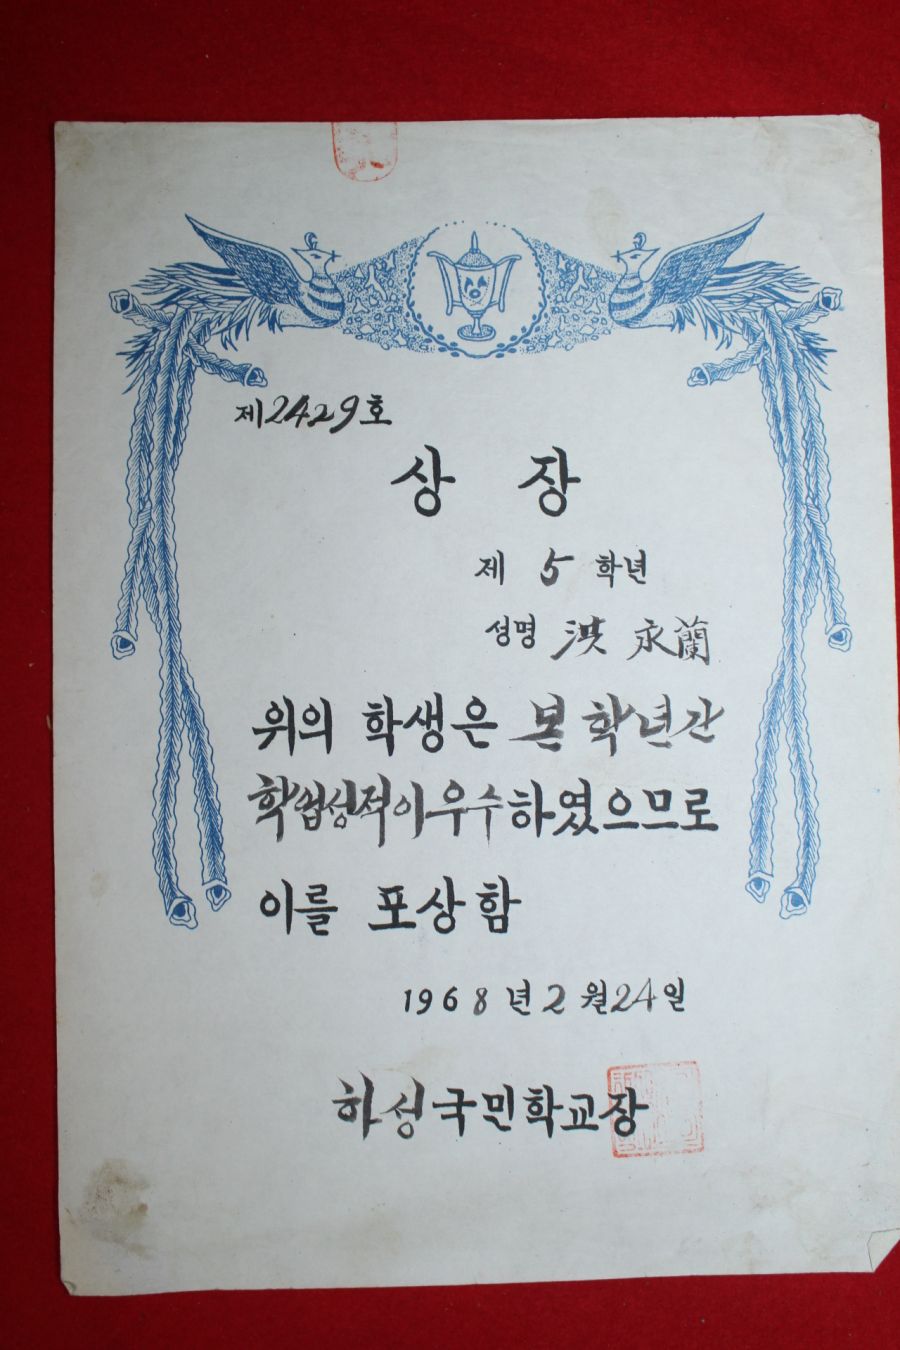 제2429호
상 장
제 5 학년
성명 洪 永蘭
위의 학생은 본 학년간
학업성적이우수하였으므로
이를 포상함
1968년 2월 24일
하성국민학교장